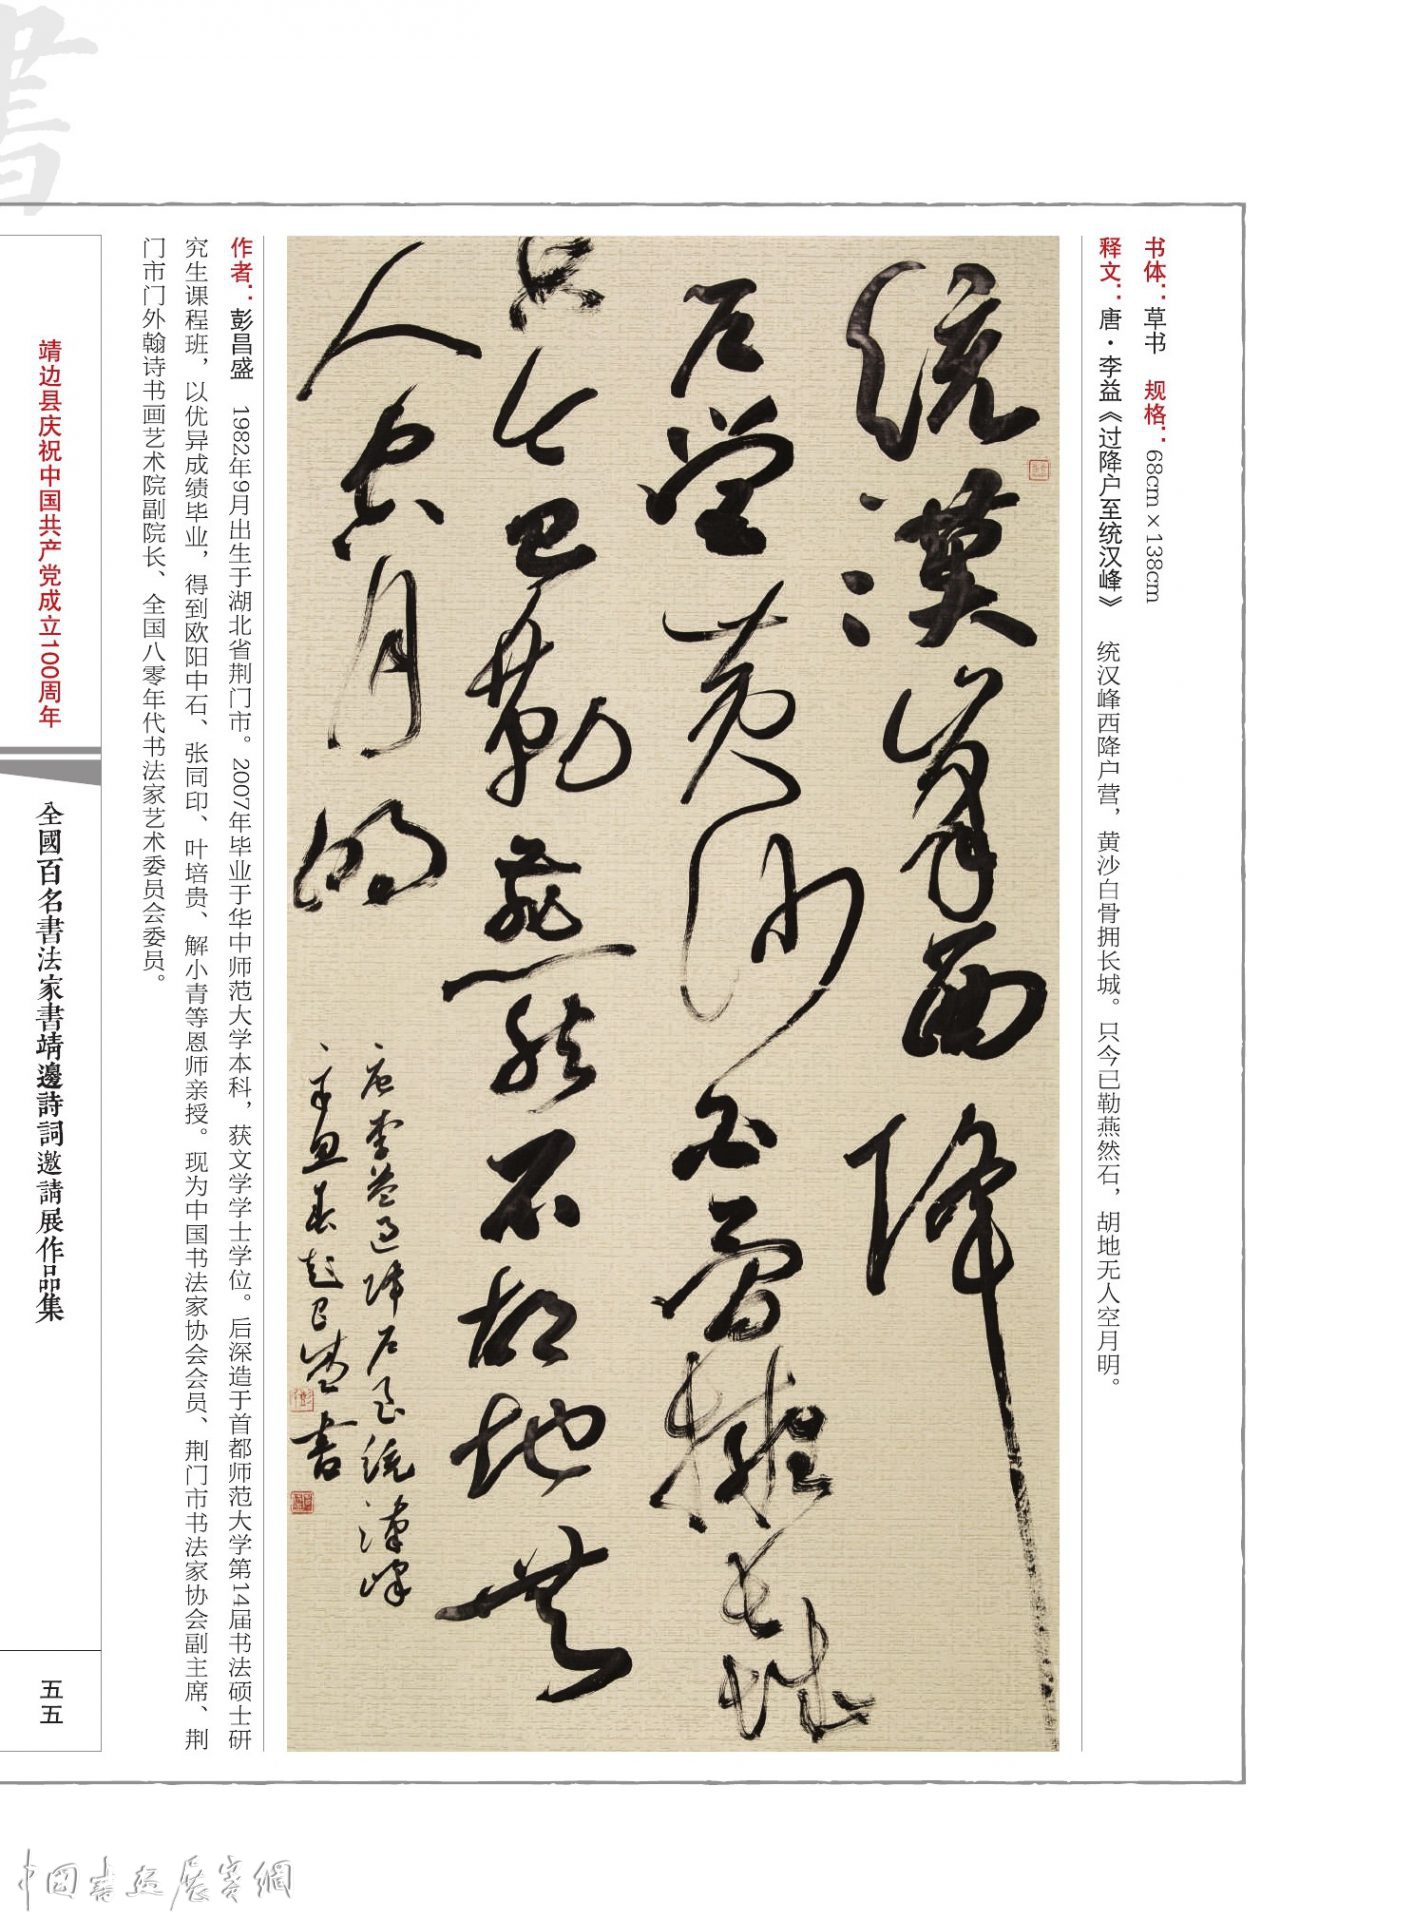 書
书体：草书　规格：68cm×138cm
释文：唐·李益《过降户至统汉峰》　统汉峰西降户营，黄沙白骨拥长城。只今已勒燕然石，胡地无人空月明。
统漢峯西降
户营黄沙白骨擁长城
只今已勒燕然石胡地无
人空月明
唐李益过降户至统漢峰
辛丑春彭昌盛书
作者：彭昌盛　1982年9月出生于湖北省荆门市。2007年毕业于华中师范大学本科，获文学学士学位。后深造于首都师范大学第14届书法硕士研
究生课程班，以优异成绩毕业，得到欧阳中石、张同印、叶培贵、解小青等恩师亲授。现为中国书法家协会会员、荆门市书法家协会副主席、荆
门市门外翰诗书画艺术院副院长、全国八零年代书法家艺术委员会委员。
靖边县庆祝中国共产党成立100周年
全國百名書法家書靖邊詩詞邀請展作品集
五五
中國書画展賽網